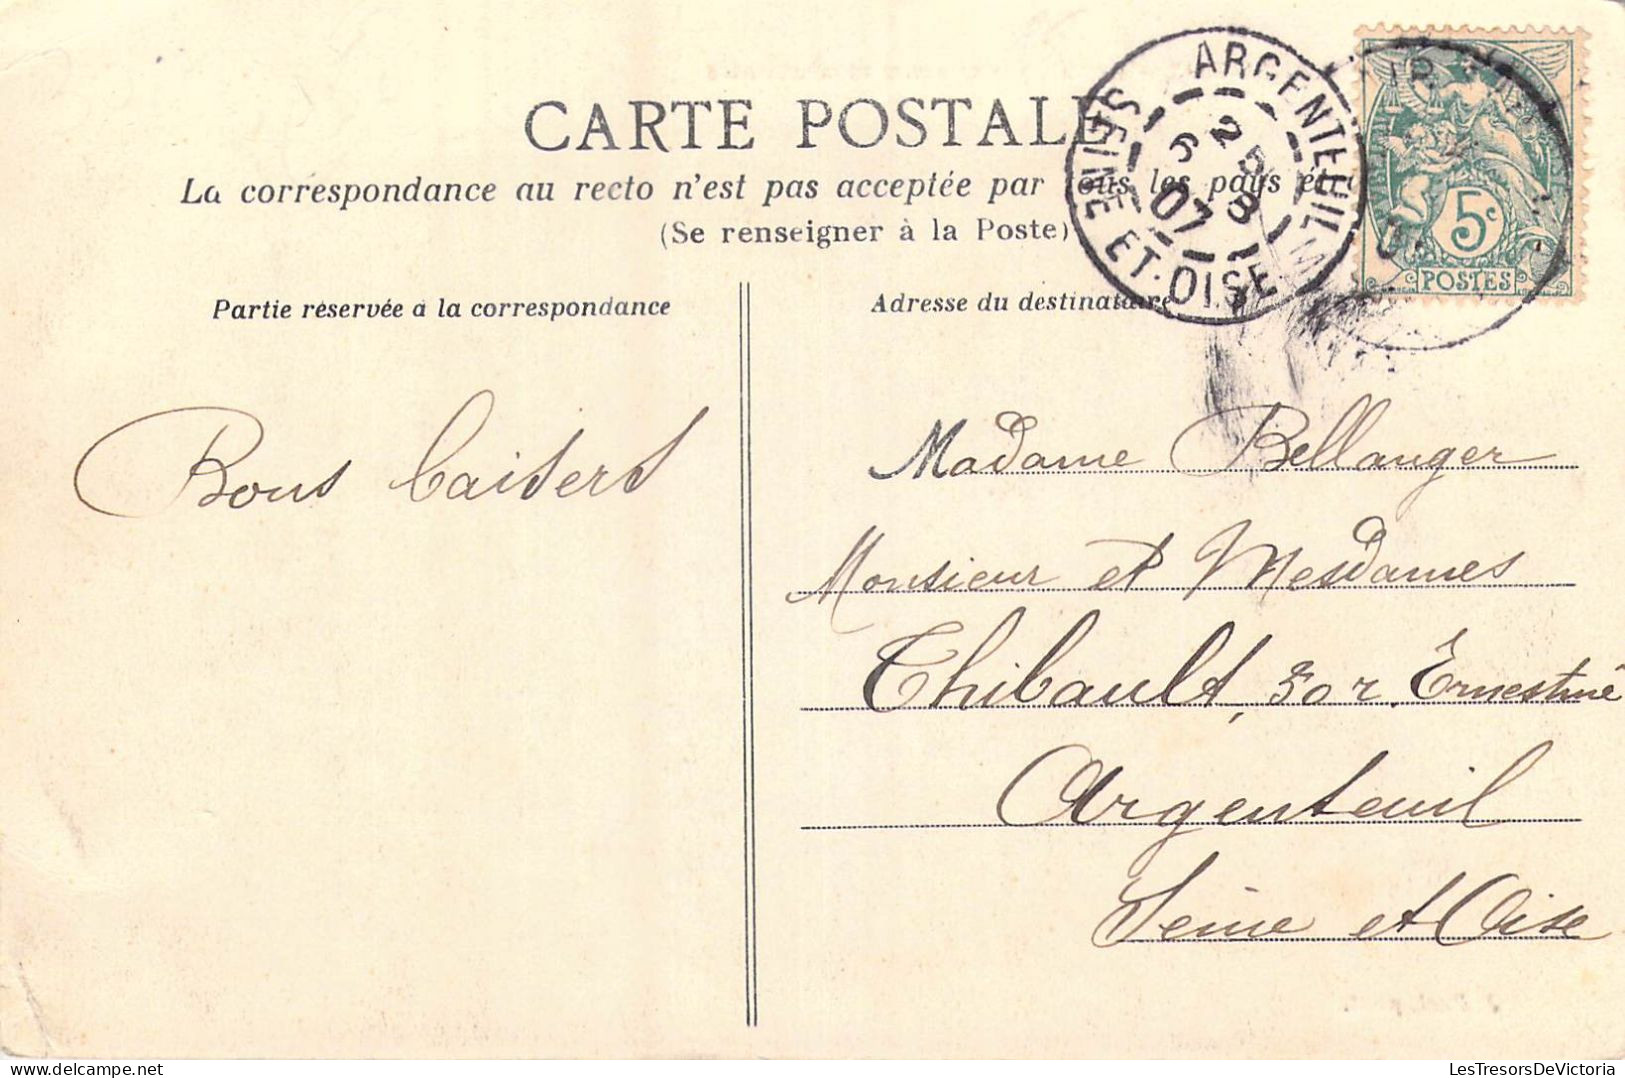 CARTE POSTALE
La correspondance au recto n'est pas acceptée par tous les pays
(Se renseigner à la Poste)
Partie réservée à la correspondance
Adresse du destinataire
ARGENTEUIL
SEINE ET-OISE
6
07
5c
POSTES
Bons baisers
Madame Bellanger
Monsieur et Mesdames
Thibault, 50 r. Ernestine
Argenteuil
Seine et Oise
delcampe.net
LesTresorsDeVictoria